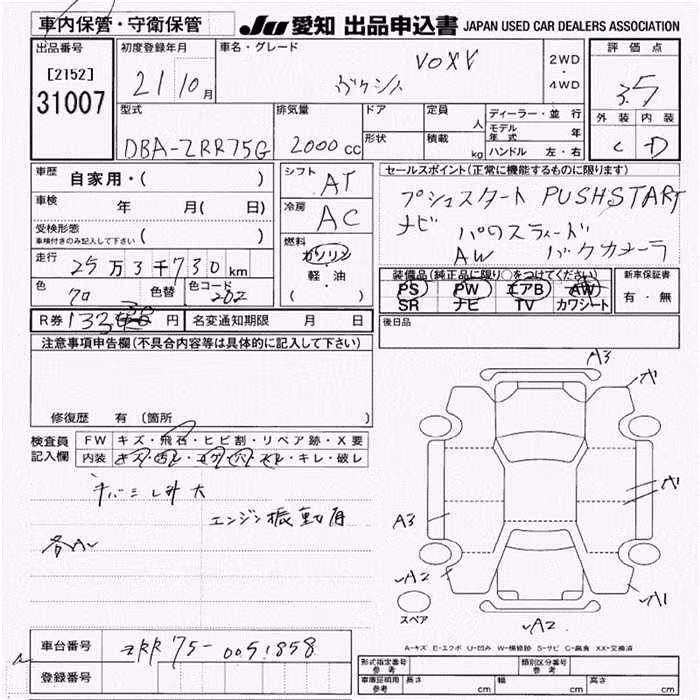 車内保管・守衛保管
JU 愛知 出品申込書 JAPAN USED CAR DEALERS ASSOCIATION
出品番号
[2152]
31007
初度登録年月
21 10月
車名・グレード
VOXY
2WD
・
4WD
評価点
3.5
外装 内装
C D
型式
DBA-ZRR75G
排気量
2000 cc
ドア
形状
定員 人
積載 kg
ディーラー・並行
モデル年式 年
ハンドル 左・右
車歴 自家用・( )
車検 年 月( 日)
受検形態
車検付きのみ記入して下さい ( )
走行 25万3千730km
色 色替 色コード 202
シフト AT
冷房 AC
燃料
ガソリン
軽・油
( )
セールスポイント(正常に機能するものに限ります)
プシュスタート PUSHSTART
ナビ
AW バックカメラ
装備品(純正品に限り○をつけてください)
PS PW エアB AW
SR ナビ TV カワシート
新車保証書
有・無
R券 133 円
名変通知期限 月 日
後日品
注意事項申告欄(不具合内容等は具体的に記入して下さい)
修復歴 有(箇所 )
検査員
記入欄
FW キズ・飛石・ヒビ割・リペア跡・X要
内装 キズ・汚レ・コゲ・穴・スレ・キレ・破レ
エンジン振動有
A3
A3
A2
A1
A2
スペア
A-キズ E-エクボ U-凹み W-補修跡 S-サビ C-腐食 XX-交換済
車台番号 ZRR75-0051858
登録番号
形式指定番号
参考
類別区分番号
参考
車庫証明用
参考
長さ cm
幅 cm
高さ cm